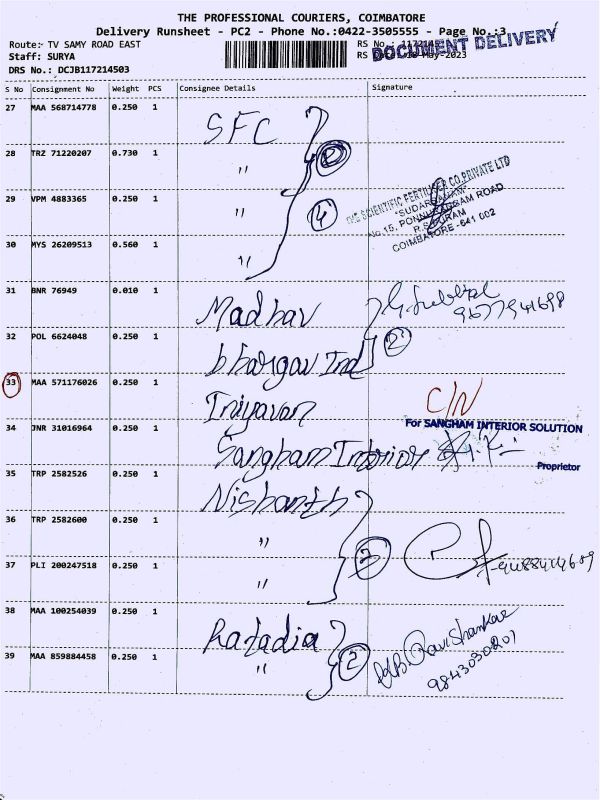 THE PROFESSIONAL COURIERS, COIMBATORE
Delivery Runsheet - PC2 - Phone No.:0422-3505555 - Page No.:3
Route:- TV SAMY ROAD EAST
RS No.: 117214
Staff: SURYA
RS Date: -May-2023
DOCUMENT DELIVERY
DRS No.: DCJB117214503
S No Consignment No Weight PCS Consignee Details Signature
27 MAA 568714778 0.250 1 SFC
28 TRZ 71220207 0.730 1 "
29 VPM 4883365 0.250 1 " 4
THE SCIENTIFIC FERTILISER CO.PRIVATE LTD
"SUDARSANAM"
No.15, PONNURANGAM ROAD
R.S.PURAM
COIMBATORE-641 002
30 MYS 26209513 0.560 1 "
31 BNR 76949 0.010 1 Madhav
9677941698
32 POL 6624048 0.250 1 bhargav Ind 2
33 MAA 571176026 0.250 1 Iniyavan C/N
34 JNR 31016964 0.250 1 Sangham Interior
For SANGHAM INTERIOR SOLUTION
Proprietor
35 TRP 2582526 0.250 1 Nishanth
36 TRP 2582600 0.250 1 " 3
37 PLI 200247518 0.250 1 "
38 MAA 100254039 0.250 1 Ratadia
39 MAA 859884458 0.250 1 " 2
Ravishankar
9843030201